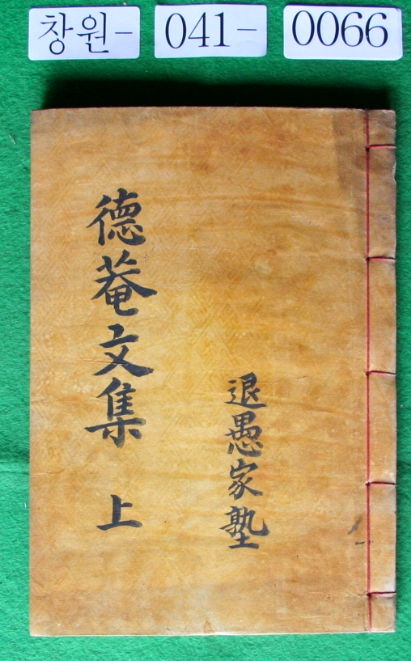 창원- 041- 0066
德菴文集 上
退愚家塾